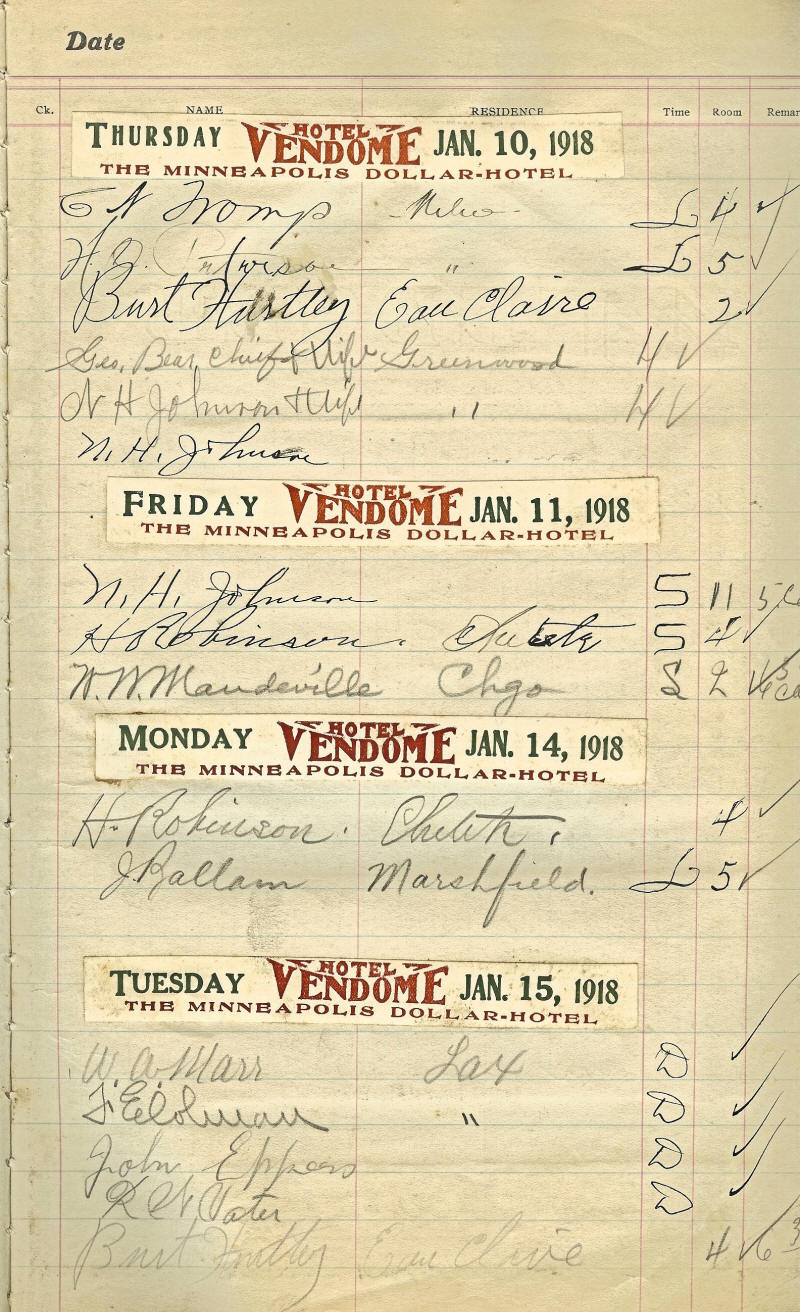 Date
Ck. NAME RESIDENCE Time Room Remar
THURSDAY HOTEL VENDOME JAN. 10, 1918
THE MINNEAPOLIS DOLLAR-HOTEL
Milw L 4 ✓
H. Peterson " L 5 ✓
Burt Hartley Eau Claire 2 ✓
Geo. Bear Chief & Wife Greenwood 4 ✓
N H Johnson & Wife " 4 ✓
N. H. Johnson
FRIDAY HOTEL VENDOME JAN. 11, 1918
THE MINNEAPOLIS DOLLAR-HOTEL
N. H. Johnson S 11
H Robinson. Chetek S 4 ✓
W. W. Mandeville Chgo S 2
MONDAY HOTEL VENDOME JAN. 14, 1918
THE MINNEAPOLIS DOLLAR-HOTEL
H. Robinson. Chetek. 4 ✓
J. Rallam Marshfield. L 5 ✓
TUESDAY HOTEL VENDOME JAN. 15, 1918
THE MINNEAPOLIS DOLLAR-HOTEL
W. A. Marr Lax D ✓
" D ✓
John Eppers D ✓
D ✓
Burt Hartley Eau Claire 4